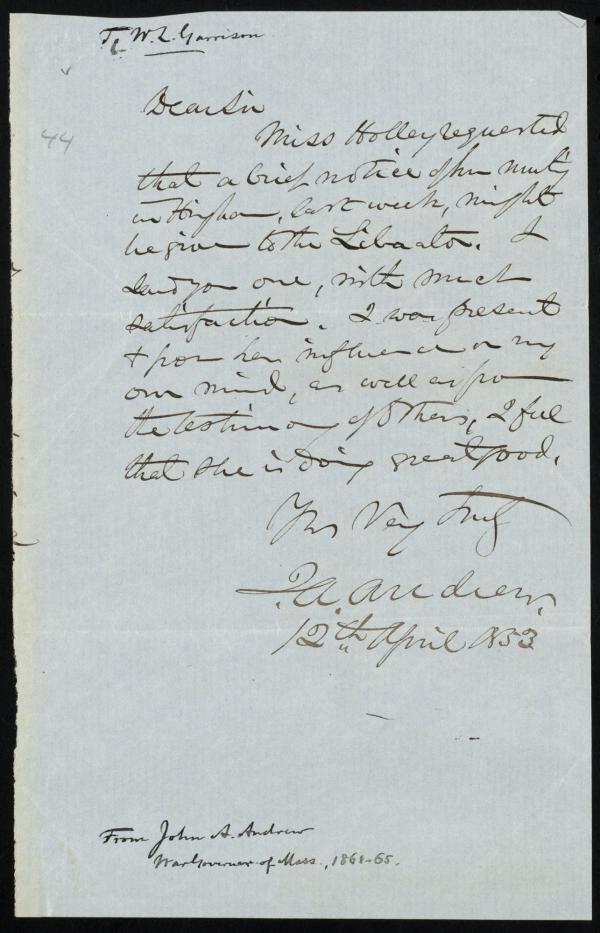 To W. L. Garrison.
44
Dear Sir
Miss Holley requested
that a brief notice of her meeting
in Hingham, last week, might
be given to the Liberator. I
send you one, with much
satisfaction. I was present
& from her influence on my
own mind, as well as from
the testimony of others, I feel
that she is doing great good.
Yrs Very Truly
J. A. Andrew.
12th April 1853
From John A. Andrew
War Governor of Mass., 1861-65.